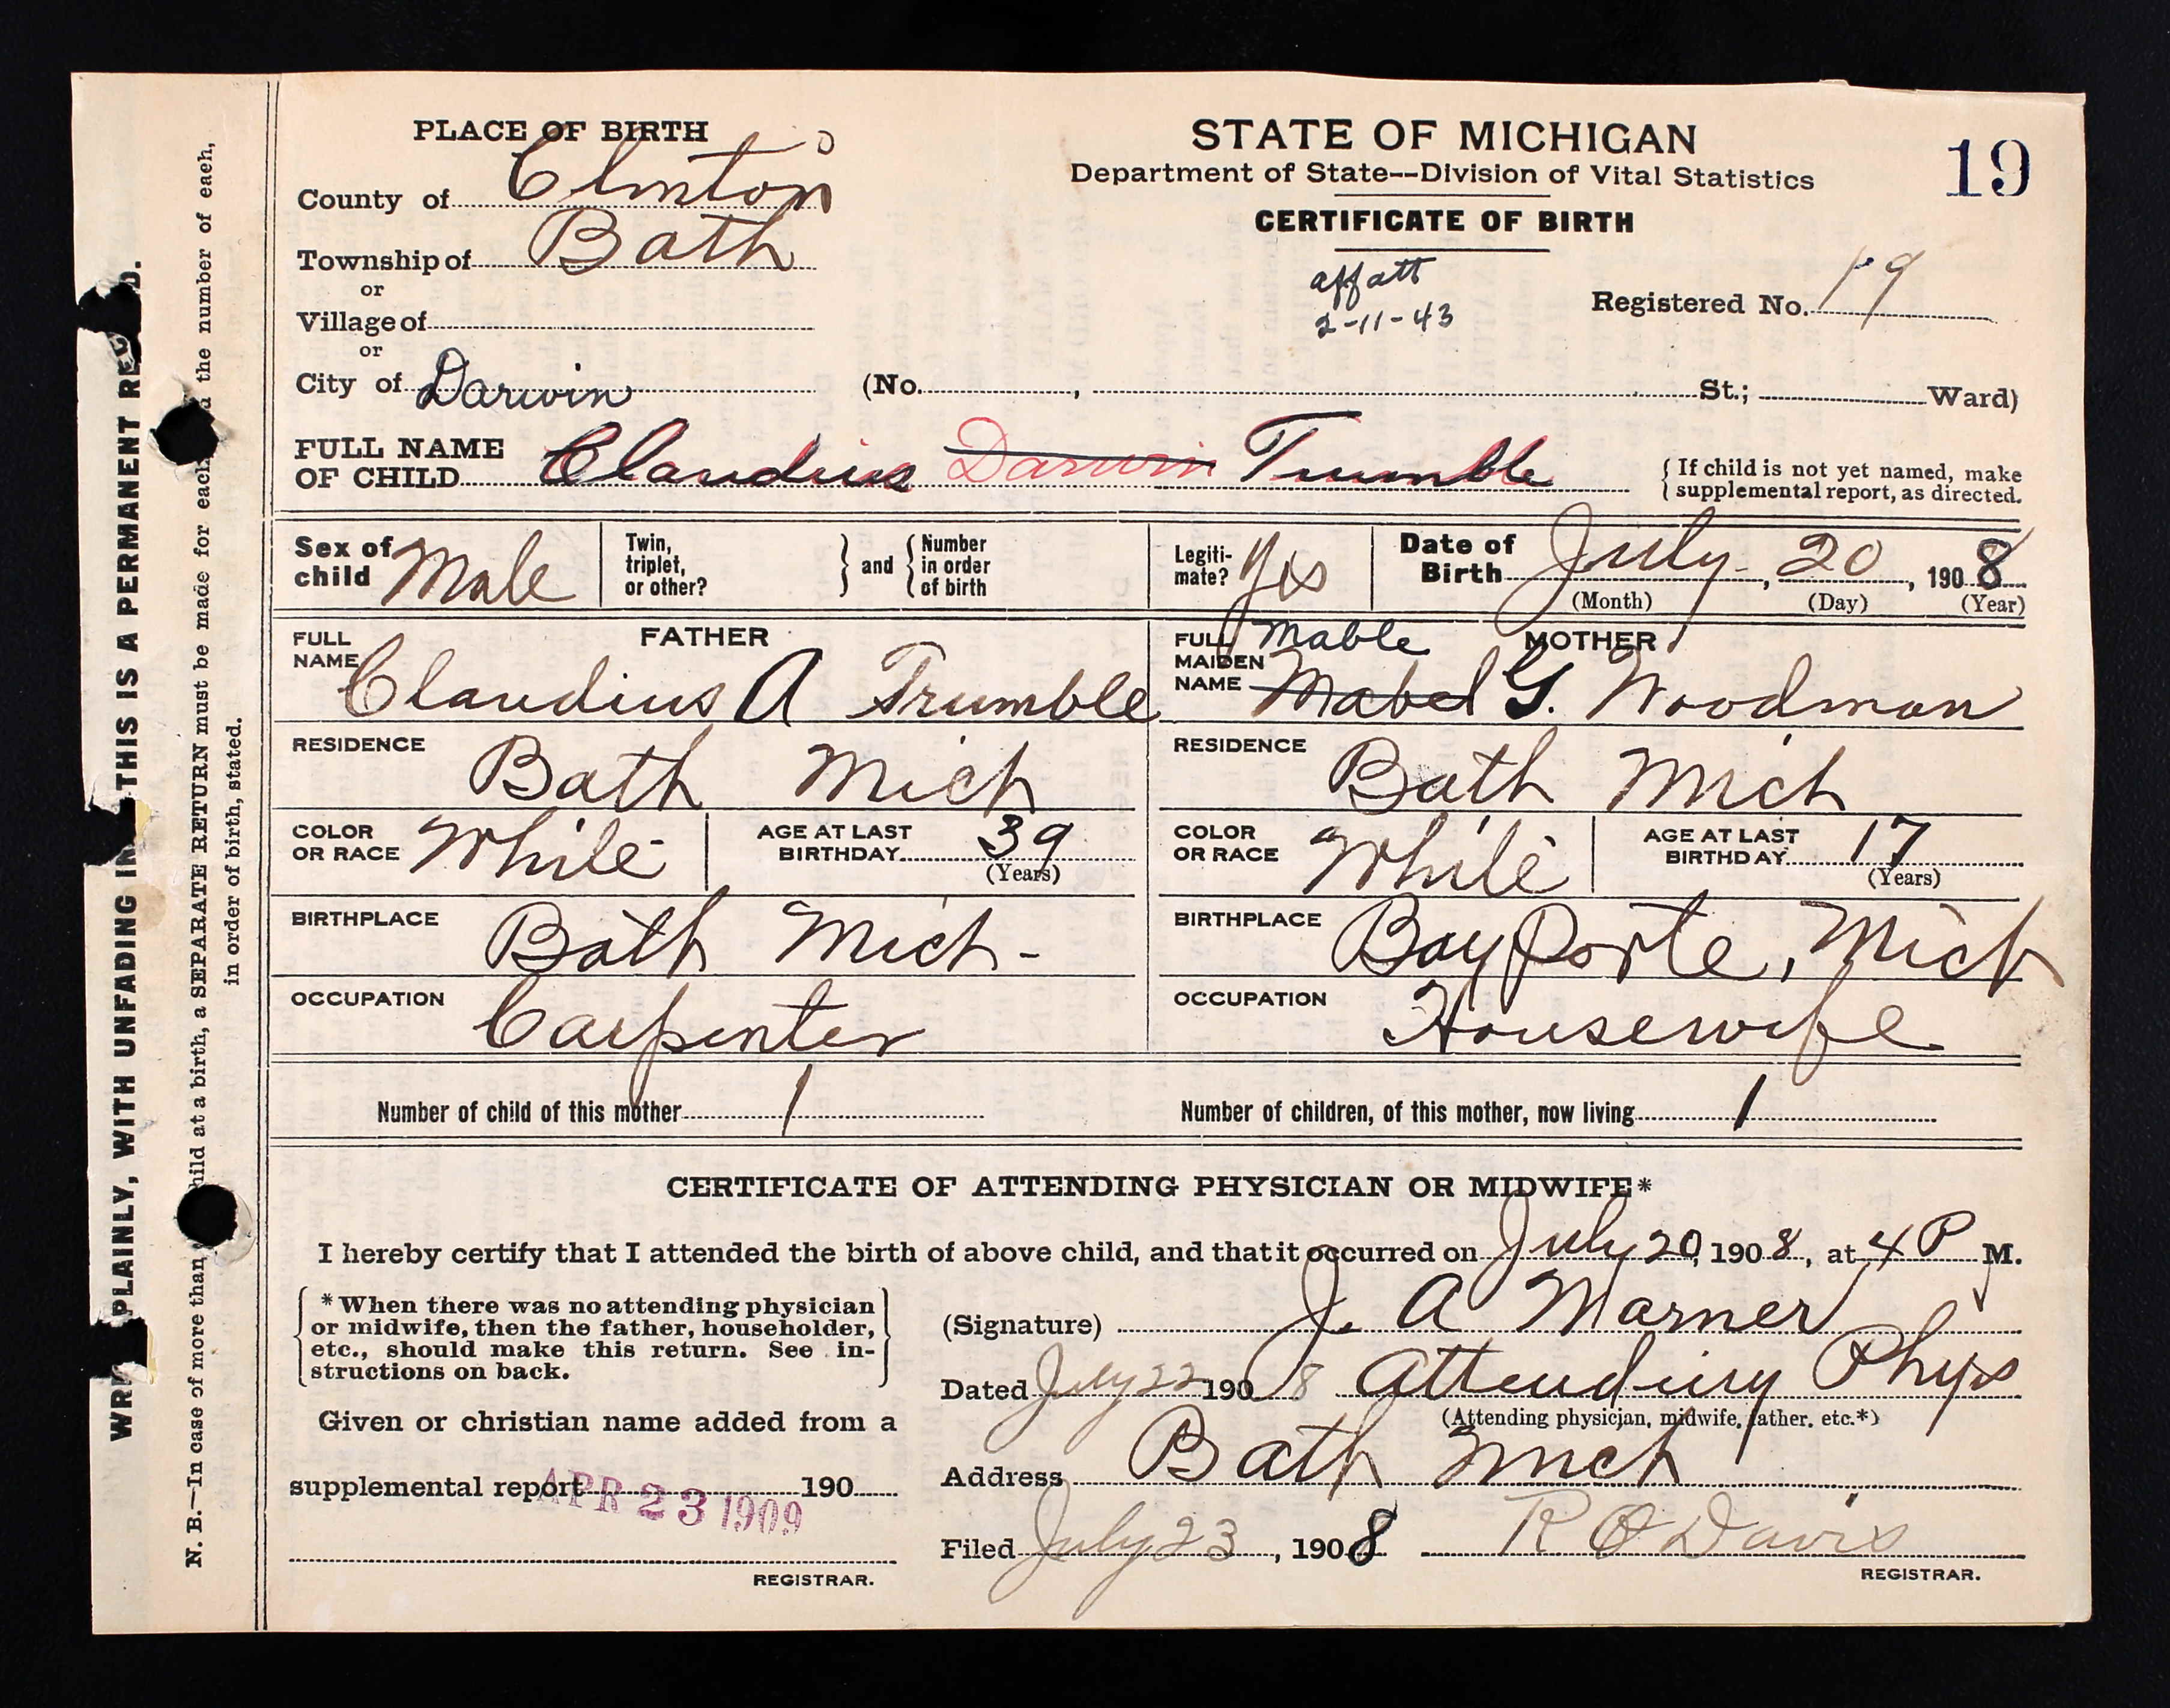 PLACE OF BIRTH
County of Clinton
Township of Bath
or
Village of
or
City of Darwin
STATE OF MICHIGAN
Department of State--Division of Vital Statistics
CERTIFICATE OF BIRTH
19
affatt
2-11-43
Registered No. 19
(No. , St.; Ward)
FULL NAME OF CHILD Claudius Darwin Trumble
{ If child is not yet named, make
supplemental report, as directed.
Sex of child Male
Twin, triplet, or other? } and { Number in order of birth
Legiti-mate? Yes
Date of Birth July, 20, 1908
(Month) (Day) (Year)
FATHER
FULL NAME Claudius A Trumble
RESIDENCE Bath Mich
COLOR OR RACE White
AGE AT LAST BIRTHDAY 39
(Years)
BIRTHPLACE Bath Mich-
OCCUPATION Carpenter
MOTHER
FULL MAIDEN NAME Mable Mabel G. Woodman
RESIDENCE Bath Mich
COLOR OR RACE White
AGE AT LAST BIRTHDAY 17
(Years)
BIRTHPLACE Bay Porte, Mich
OCCUPATION Housewife
Number of child of this mother 1
Number of children, of this mother, now living 1
CERTIFICATE OF ATTENDING PHYSICIAN OR MIDWIFE*
I hereby certify that I attended the birth of above child, and that it occurred on July 20, 1908, at 4 P M.
{ *When there was no attending physician
or midwife, then the father, householder,
etc., should make this return. See in-
structions on back. }
(Signature) J. A Warner
Dated July 22 1908 Attending Phys
(Attending physician, midwife, father, etc.*)
Given or christian name added from a
supplemental report 190
APR 23 1909
REGISTRAR.
Address Bath Mich
Filed July 23, 1908 R O Davis
REGISTRAR.
PLAINLY, WITH UNFADING THIS IS A PERMANENT
N. B.—In case of more than child at a birth, a SEPARATE RETURN must be made for each the number of each,
in order of birth, stated.